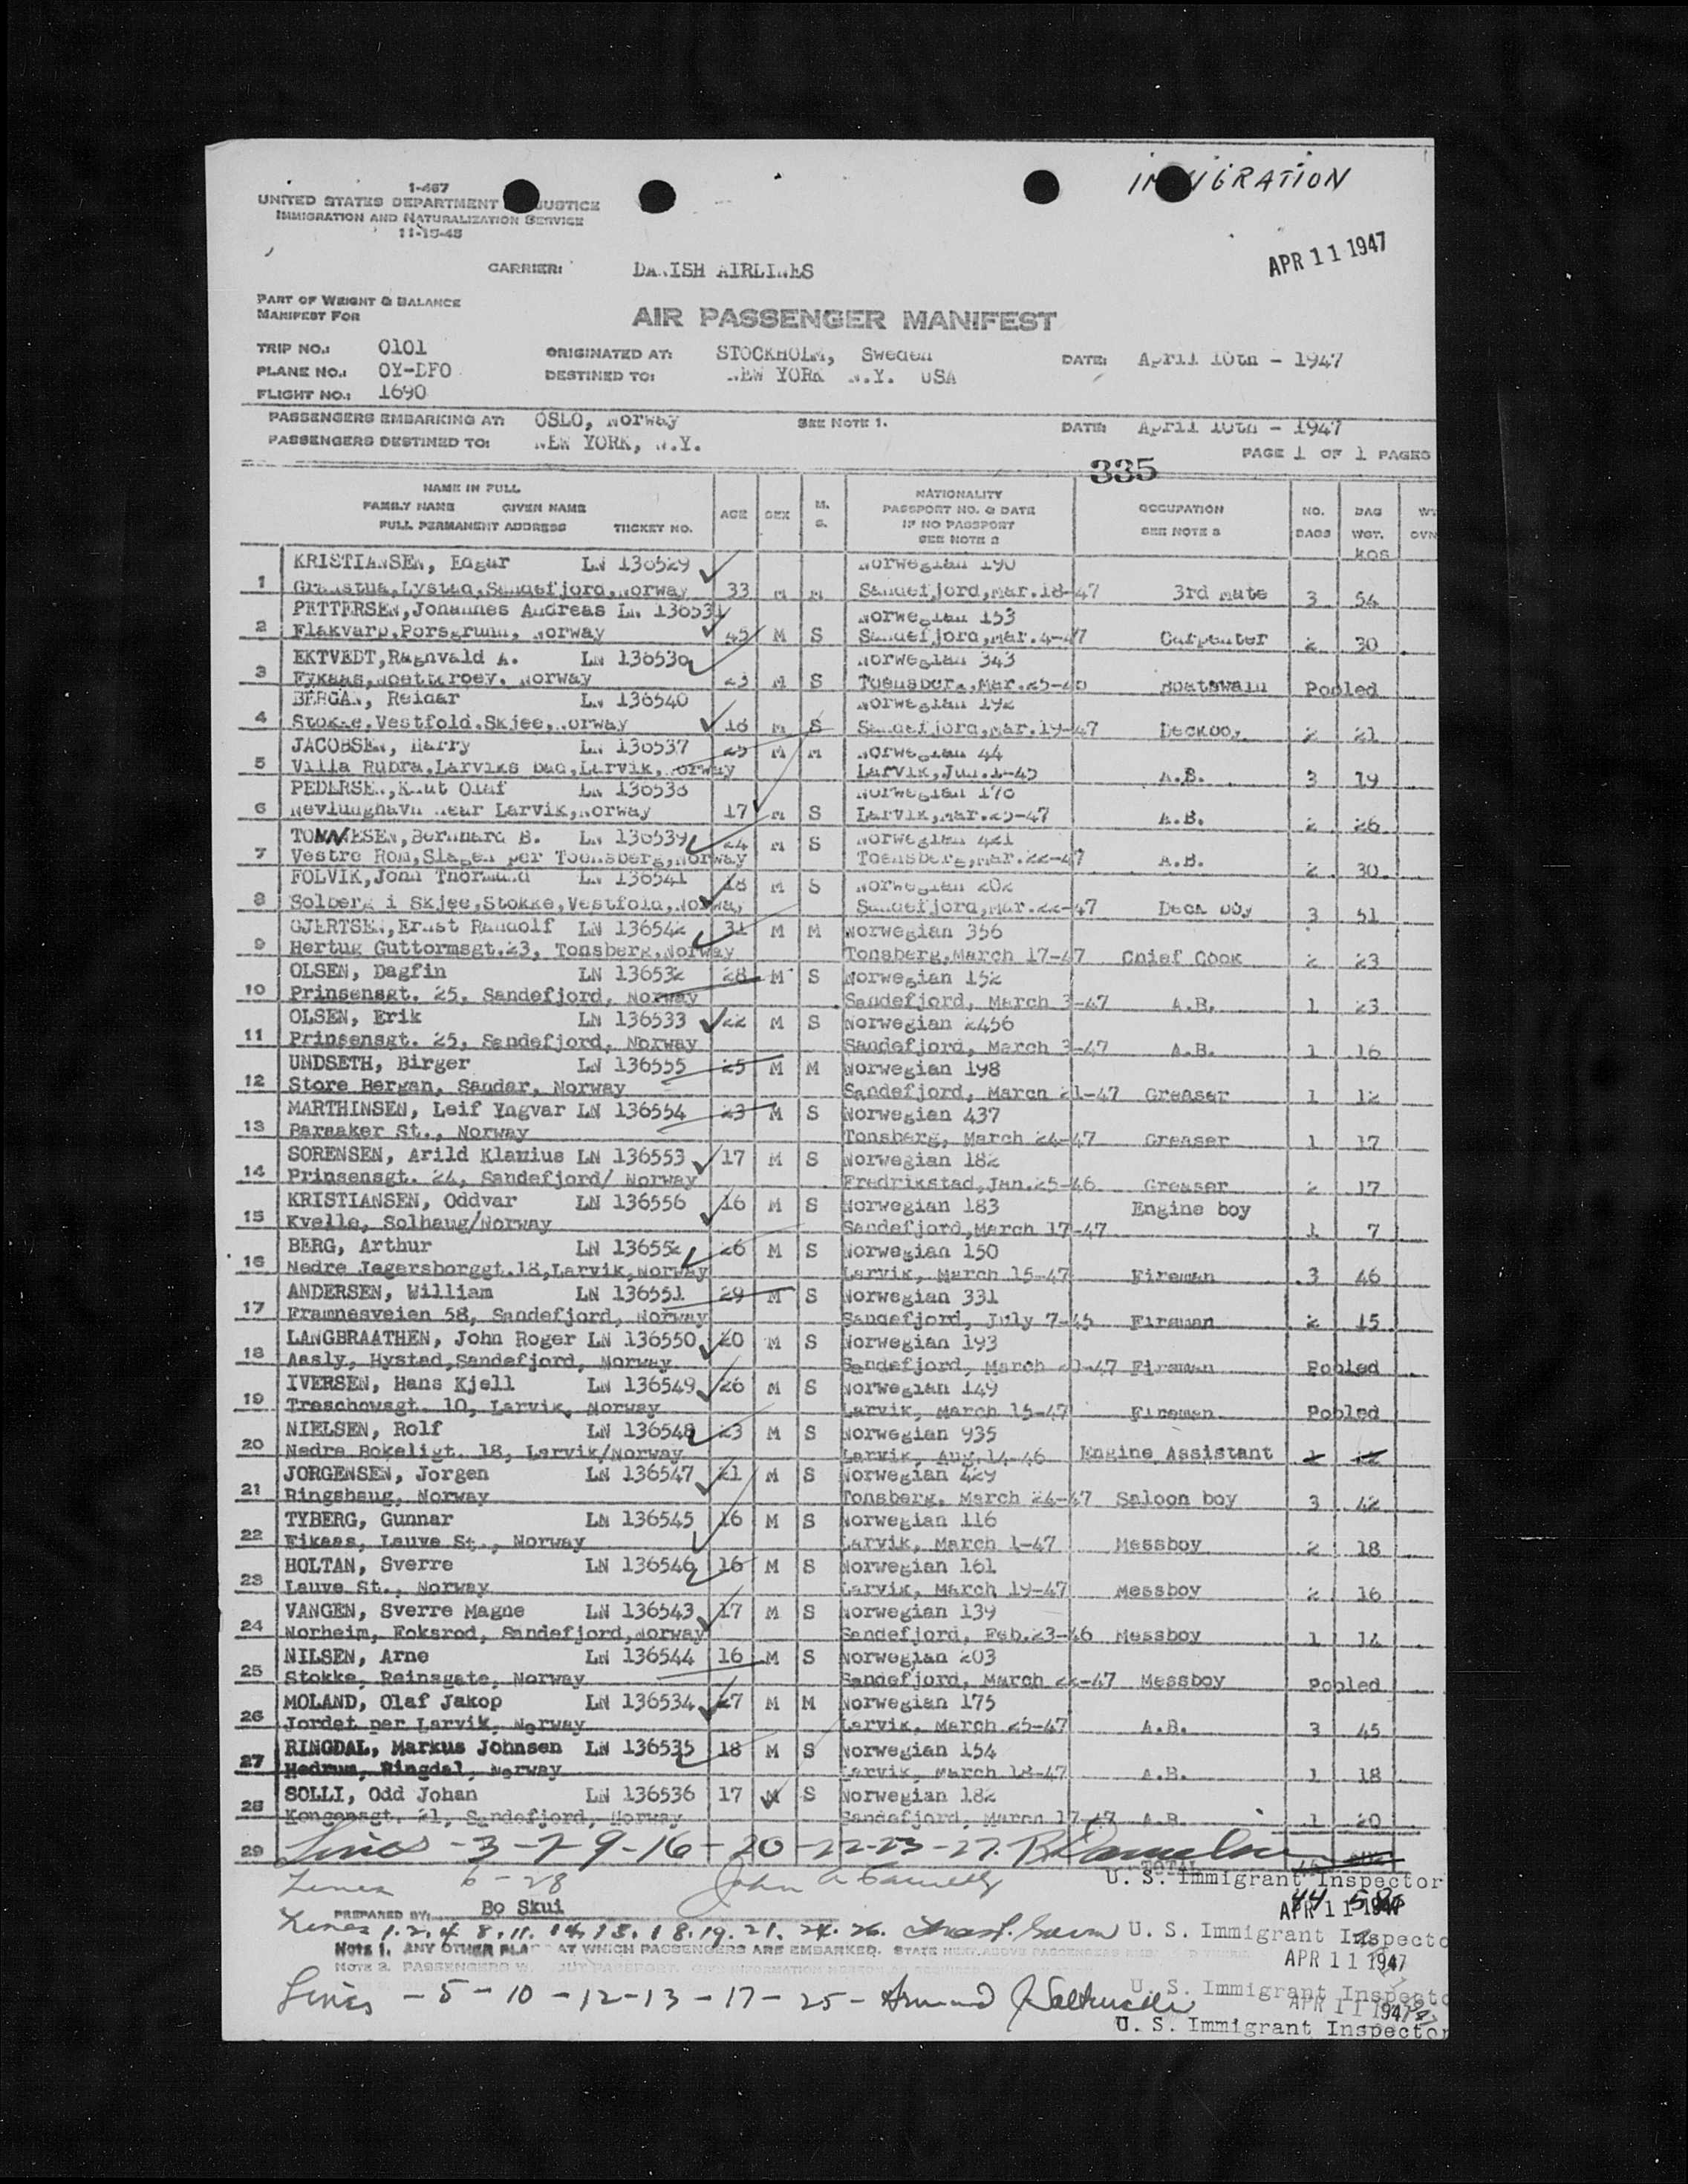 IMMIGRATION
1-467
UNITED STATES DEPARTMENT JUSTICE
IMMIGRATION AND NATURALIZATION SERVICE
11-15-45
APR 11 1947
CARRIER: DANISH AIRLINES
PART OF WEIGHT & BALANCE
MANIFEST FOR
AIR PASSENGER MANIFEST
TRIP NO.: 0101 ORIGINATED AT: STOCKHOLM, Sweden DATE: April 10th - 1947
PLANE NO.: OY-DFO DESTINED TO: NEW YORK N.Y. USA
FLIGHT NO.: 1690
PASSENGERS EMBARKING AT: OSLO, Norway SEE NOTE 1. DATE: April 10th - 1947
PASSENGERS DESTINED TO: NEW YORK, N.Y.
335 PAGE 1 OF 1 PAGES
NAME IN FULL
FAMILY NAME GIVEN NAME
FULL PERMANENT ADDRESS TICKET NO.
AGE SEX M. S.
NATIONALITY
PASSPORT NO. & DATE
IF NO PASSPORT
SEE NOTE 2
OCCUPATION
SEE NOTE 3
NO. BAGS
BAG WGT.
kos
KRISTIANSEN, Edgar LN 136529 Norwegian 190
1 Sandefjord, Norway 33 M M Sandefjord, Mar. 18-47 3rd mate 3 54
PETTERSEN, Johannes Andreas LN 136531 Norwegian 153
2 Flakvarp, Porsgrunn, Norway 45 M S Sandefjord, Mar. 4-47 Carpenter 2 30
EKTVEDT, Ragnvald A. LN 136530 Norwegian 343
3 Norway 23 M S Boatswain Pooled
BERGAN, Reidar LN 136540 Norwegian 192
4 Stokke, Vestfold, Skjee, Norway 18 M S Sandefjord, Mar. 19-47 Deckboy 2 21
JACOBSEN, Harry LN 136537 25 M M Norwegian 44
5 Villa Rubra, Larviks bad, Larvik, Norway A.B. 3 19
PEDERSEN, Knut Olaf LN 136538 Norwegian 170
6 Nevlunghavn near Larvik, Norway 17 M S Larvik, Mar. 25-47 A.B. 2 26
TONNESEN, Bernhard B. LN 136539 24 M S Norwegian 421
7 Vestre Rom, Slagen per Toensberg, Norway Toensberg, Mar. 22-47 A.B. 2 30
FOLVIK, John Thormund LN 136541 18 M S Norwegian 202
8 Solberg i Skjee, Stokke, Vestfold, Norway Sandefjord, Mar. 22-47 Deck boy 3 51
GJERTSEN, Ernst Randolf LN 136542 31 M M Norwegian 356
9 Hertug Guttormsgt.23, Tonsberg, Norway Tonsberg, March 17-47 Chief Cook 2 23
OLSEN, Dagfin LN 136532 28 M S Norwegian 152
10 Prinsensgt. 25, Sandefjord, Norway Sandefjord, March 3-47 A.B. 1 23
OLSEN, Erik LN 136533 22 M S Norwegian 2456
11 Prinsensgt. 25, Sandefjord, Norway Sandefjord, March 3-47 A.B. 1 16
UNDSETH, Birger LN 136555 25 M M Norwegian 198
12 Store Bergan, Sandar, Norway Sandefjord, March 21-47 Greaser 1 12
MARTHINSEN, Leif Yngvar LN 136554 23 M S Norwegian 437
13 Baraaker St., Norway Tonsberg, March 24-47 Greaser 1 17
SORENSEN, Arild Klanius LN 136553 17 M S Norwegian 182
14 Prinsensgt. 24, Sandefjord/ Norway Fredrikstad, Jan.25-46 Greaser 2 17
KRISTIANSEN, Oddvar LN 136556 16 M S Norwegian 183 Engine boy
15 Kvelle, Solhaug/Norway Sandefjord, March 17-47 1 7
BERG, Arthur LN 136552 26 M S Norwegian 150
16 Nedre Jegersborggt.18, Larvik, Norway Larvik, March 15-47 Fireman 3 46
ANDERSEN, William LN 136551 29 M S Norwegian 331
17 Framnesveien 58, Sandefjord, Norway Sandefjord, July 7-45 Fireman 2 15
LANGBRAATHEN, John Roger LN 136550 20 M S Norwegian 193
18 Aasly, Hystad, Sandefjord, Norway Sandefjord, March 20-47 Fireman Pooled
IVERSEN, Hans Kjell LN 136549 26 M S Norwegian 149
19 Treschowsgt. 10, Larvik, Norway Larvik, March 15-47 Fireman Pooled
NIELSEN, Rolf LN 136548 23 M S Norwegian 935
20 Nedre Bokeligt. 18, Larvik/Norway Larvik, Aug.14-46 Engine Assistant 1 12
JORGENSEN, Jorgen LN 136547 21 M S Norwegian 429
21 Ringshaug, Norway Tonsberg, March 24-47 Saloon boy 3 42
TYBERG, Gunnar LN 136545 16 M S Norwegian 116
22 Eikaas, Lauve St., Norway Larvik, March 1-47 Messboy 2 18
HOLTAN, Sverre LN 136546 16 M S Norwegian 161
23 Lauve St., Norway Larvik, March 19-47 Messboy 2 16
VANGEN, Sverre Magne LN 136543 17 M S Norwegian 139
24 Norheim, Foksrod, Sandefjord, Norway Sandefjord, Feb.23-46 Messboy 1 14
NILSEN, Arne LN 136544 16 M S Norwegian 203
25 Stokke, Reinsgate, Norway Sandefjord, March 22-47 Messboy Pooled
MOLAND, Olaf Jakop LN 136534 27 M M Norwegian 175
26 Jordet per Larvik, Norway Larvik, March 25-47 A.B. 3 45
RINGDAL, Markus Johnsen LN 136535 18 M S Norwegian 154
27 Hedrum, Ringdal, Norway Larvik, March 18-47 A.B. 1 18
SOLLI, Odd Johan LN 136536 17 M S Norwegian 182
28 Kongensgt. 21, Sandefjord, Norway Sandefjord, March 17-47 A.B. 1 20
29 Lines -3-7-9-16-20-22-23-27.
TOTAL
U. S. Immigrant Inspector
Lines 6-28 John A
APR 11 1947
PREPARED BY: Bo Skui
Lines 1.2.4.8.11.14.15.18.19.21.24.26. U. S. Immigrant Inspecto
NOTE 1. ANY OTHER AT WHICH PASSENGERS ARE EMBARKED.
APR 11 1947
NOTE 2. PASSENGERS
U. S. Immigrant Inspecto
Lines -5-10-12-13-17-25-
APR 11 1947
U. S. Immigrant Inspector